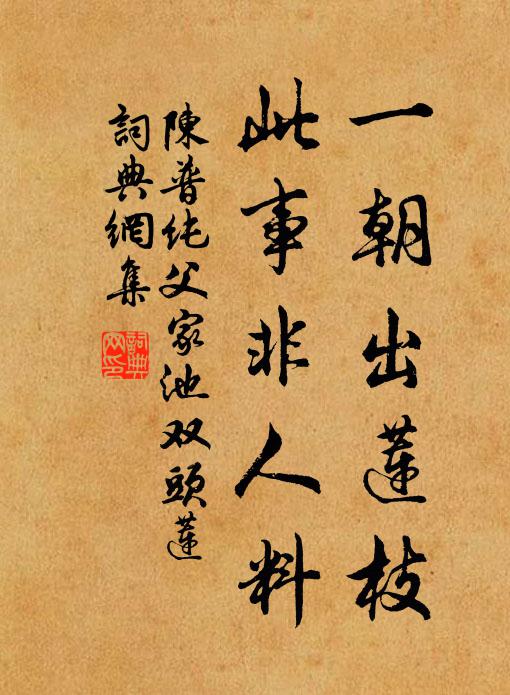 一朝出蓮枝
此事非人料
陳普纯父家池双頭蓮
詞典網集
詞典
网印